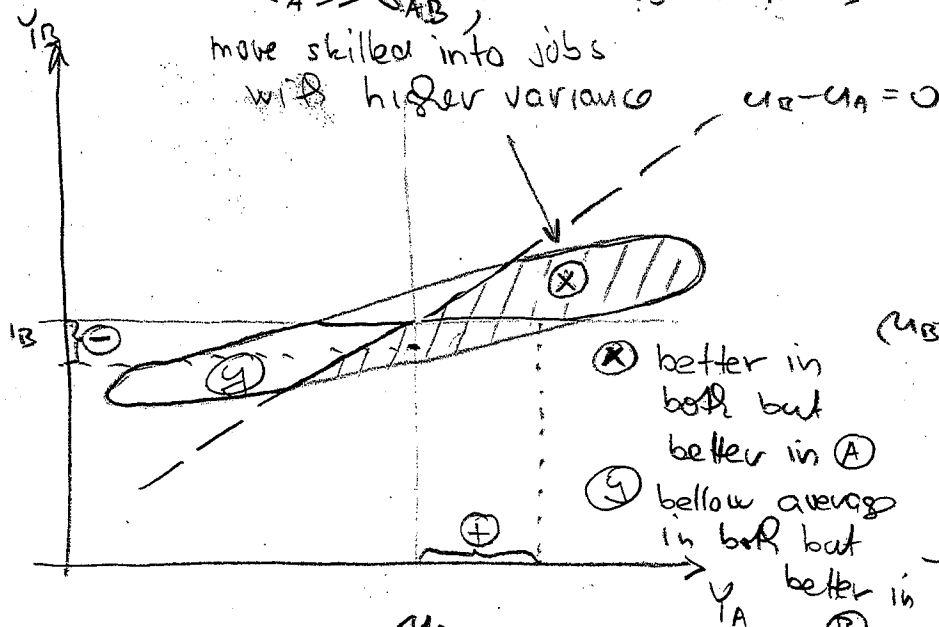 Y_B
A >> AB,
move skilled into jobs
with higher variance
μ_B-μ_A = 0
x
B
-
y
(μ_B
x better in
both but
better in A
y bellow average
in both but
better in
B
+
Y_A